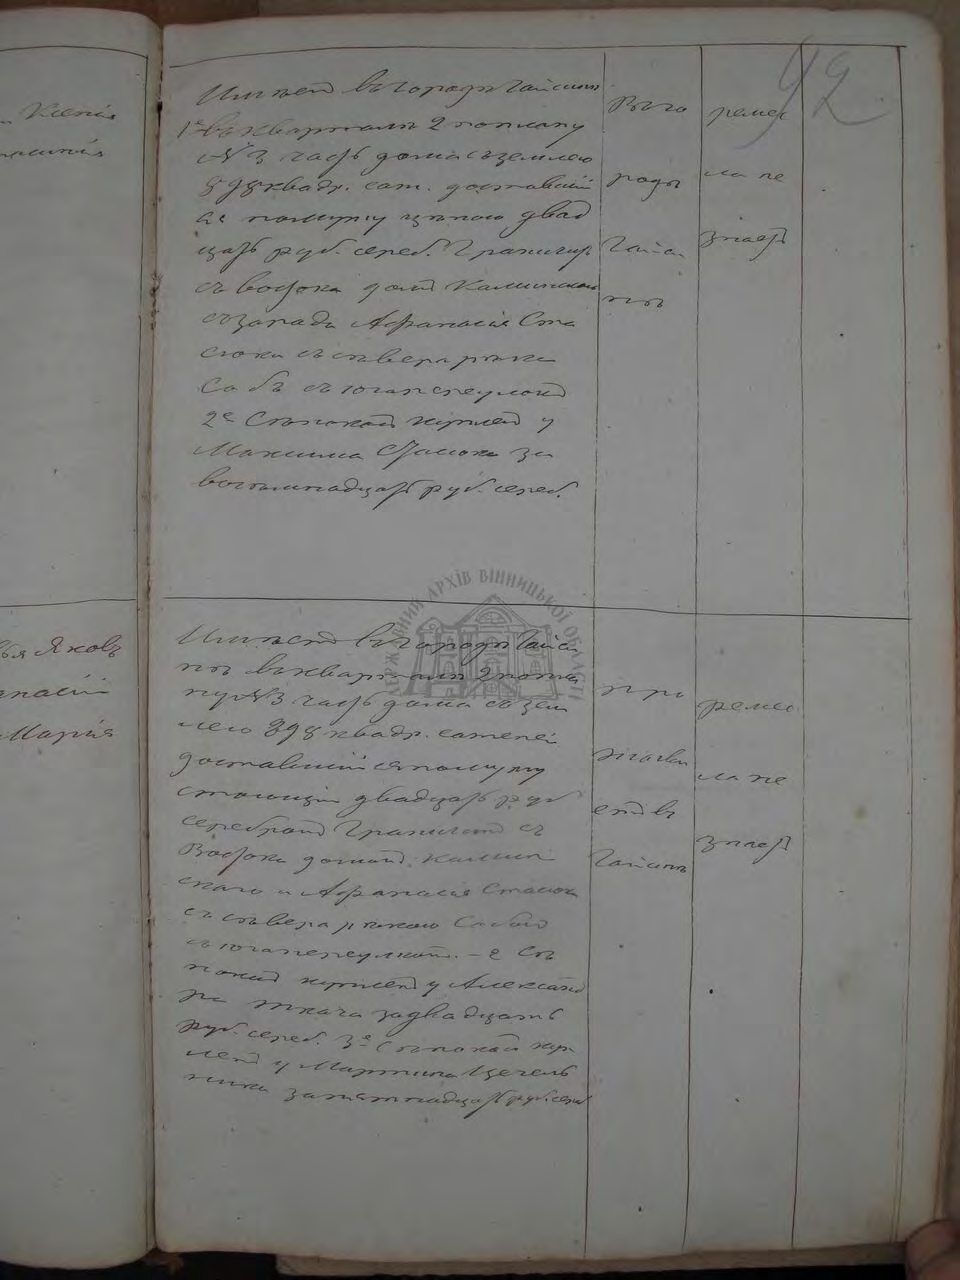 92
Ксенія
Имѣет въ городѣ Гайсинѣ
1е въ Кварталѣ 2 по плану
№ 3 часть дома съ землею
квадр. саж. доставшій
ся по мужу цѣною двад
цать руб. сереб. Граничит
съ востока дом Калинской
съ запада Афанасія Ста
сюка съ сѣвера рѣка
Собъ съ юга переулкомъ
2е Сѣнокосъ купленъ у
Максима Стасюка за
восемнадцать руб. сереб.
Въ го
родѣ
Гайси
нѣ
ремес
ла не
знает
Яковъ
Марія
Имѣетъ въ городѣ Гайси
нѣ въ Кварталѣ 2 по пла
ну № 3 часть дома съ зем
лею квадр. саженей
доставшійся по мужу
стоющій двадцать руб
серебромъ Граничит съ
Востока домомъ Калин
скаго и Афанасія Стасюка
съ сѣвера рѣкою Собомъ
съ юга переулкомъ. – 2 Сѣ
нокосъ купленъ у Александ
ра Ткача за двадцать
руб. сереб. 3е Сѣнокосъ куп
ленъ у Мартина Чечель
ника за пятнадцать руб. сереб
про
жива
етъ въ
Гайсинѣ
ремес
ла не
знает
ДЕРЖАВНИЙ АРХІВ ВІННИЦЬКОЇ ОБЛАСТІ